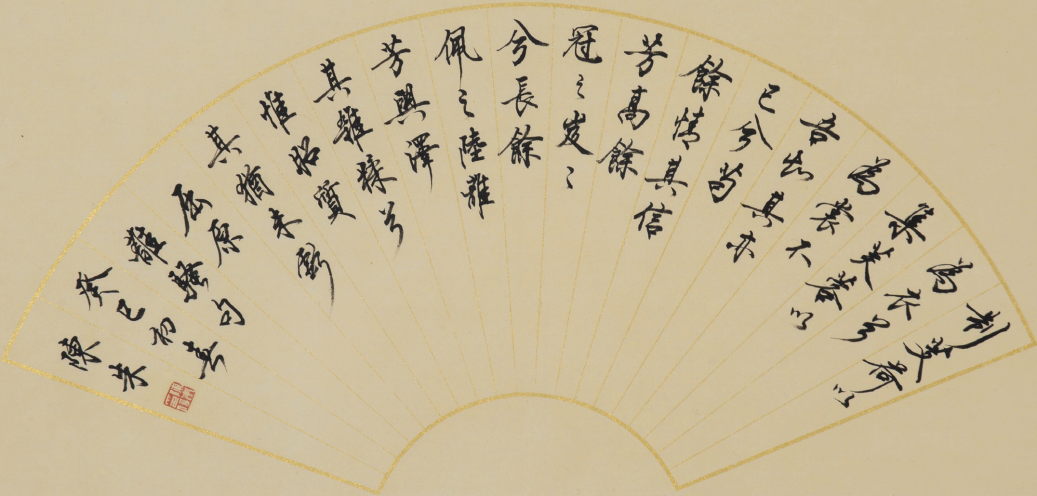 制芰荷以
為衣兮
集芙蓉以
為裳不
吾知其亦
已兮苟
餘情其信
芳高餘
冠之岌々
兮長餘
佩之陸離
芳與澤
其雜糅兮
惟昭質
其猶未虧
屈原
離騷句
癸巳初春
陳